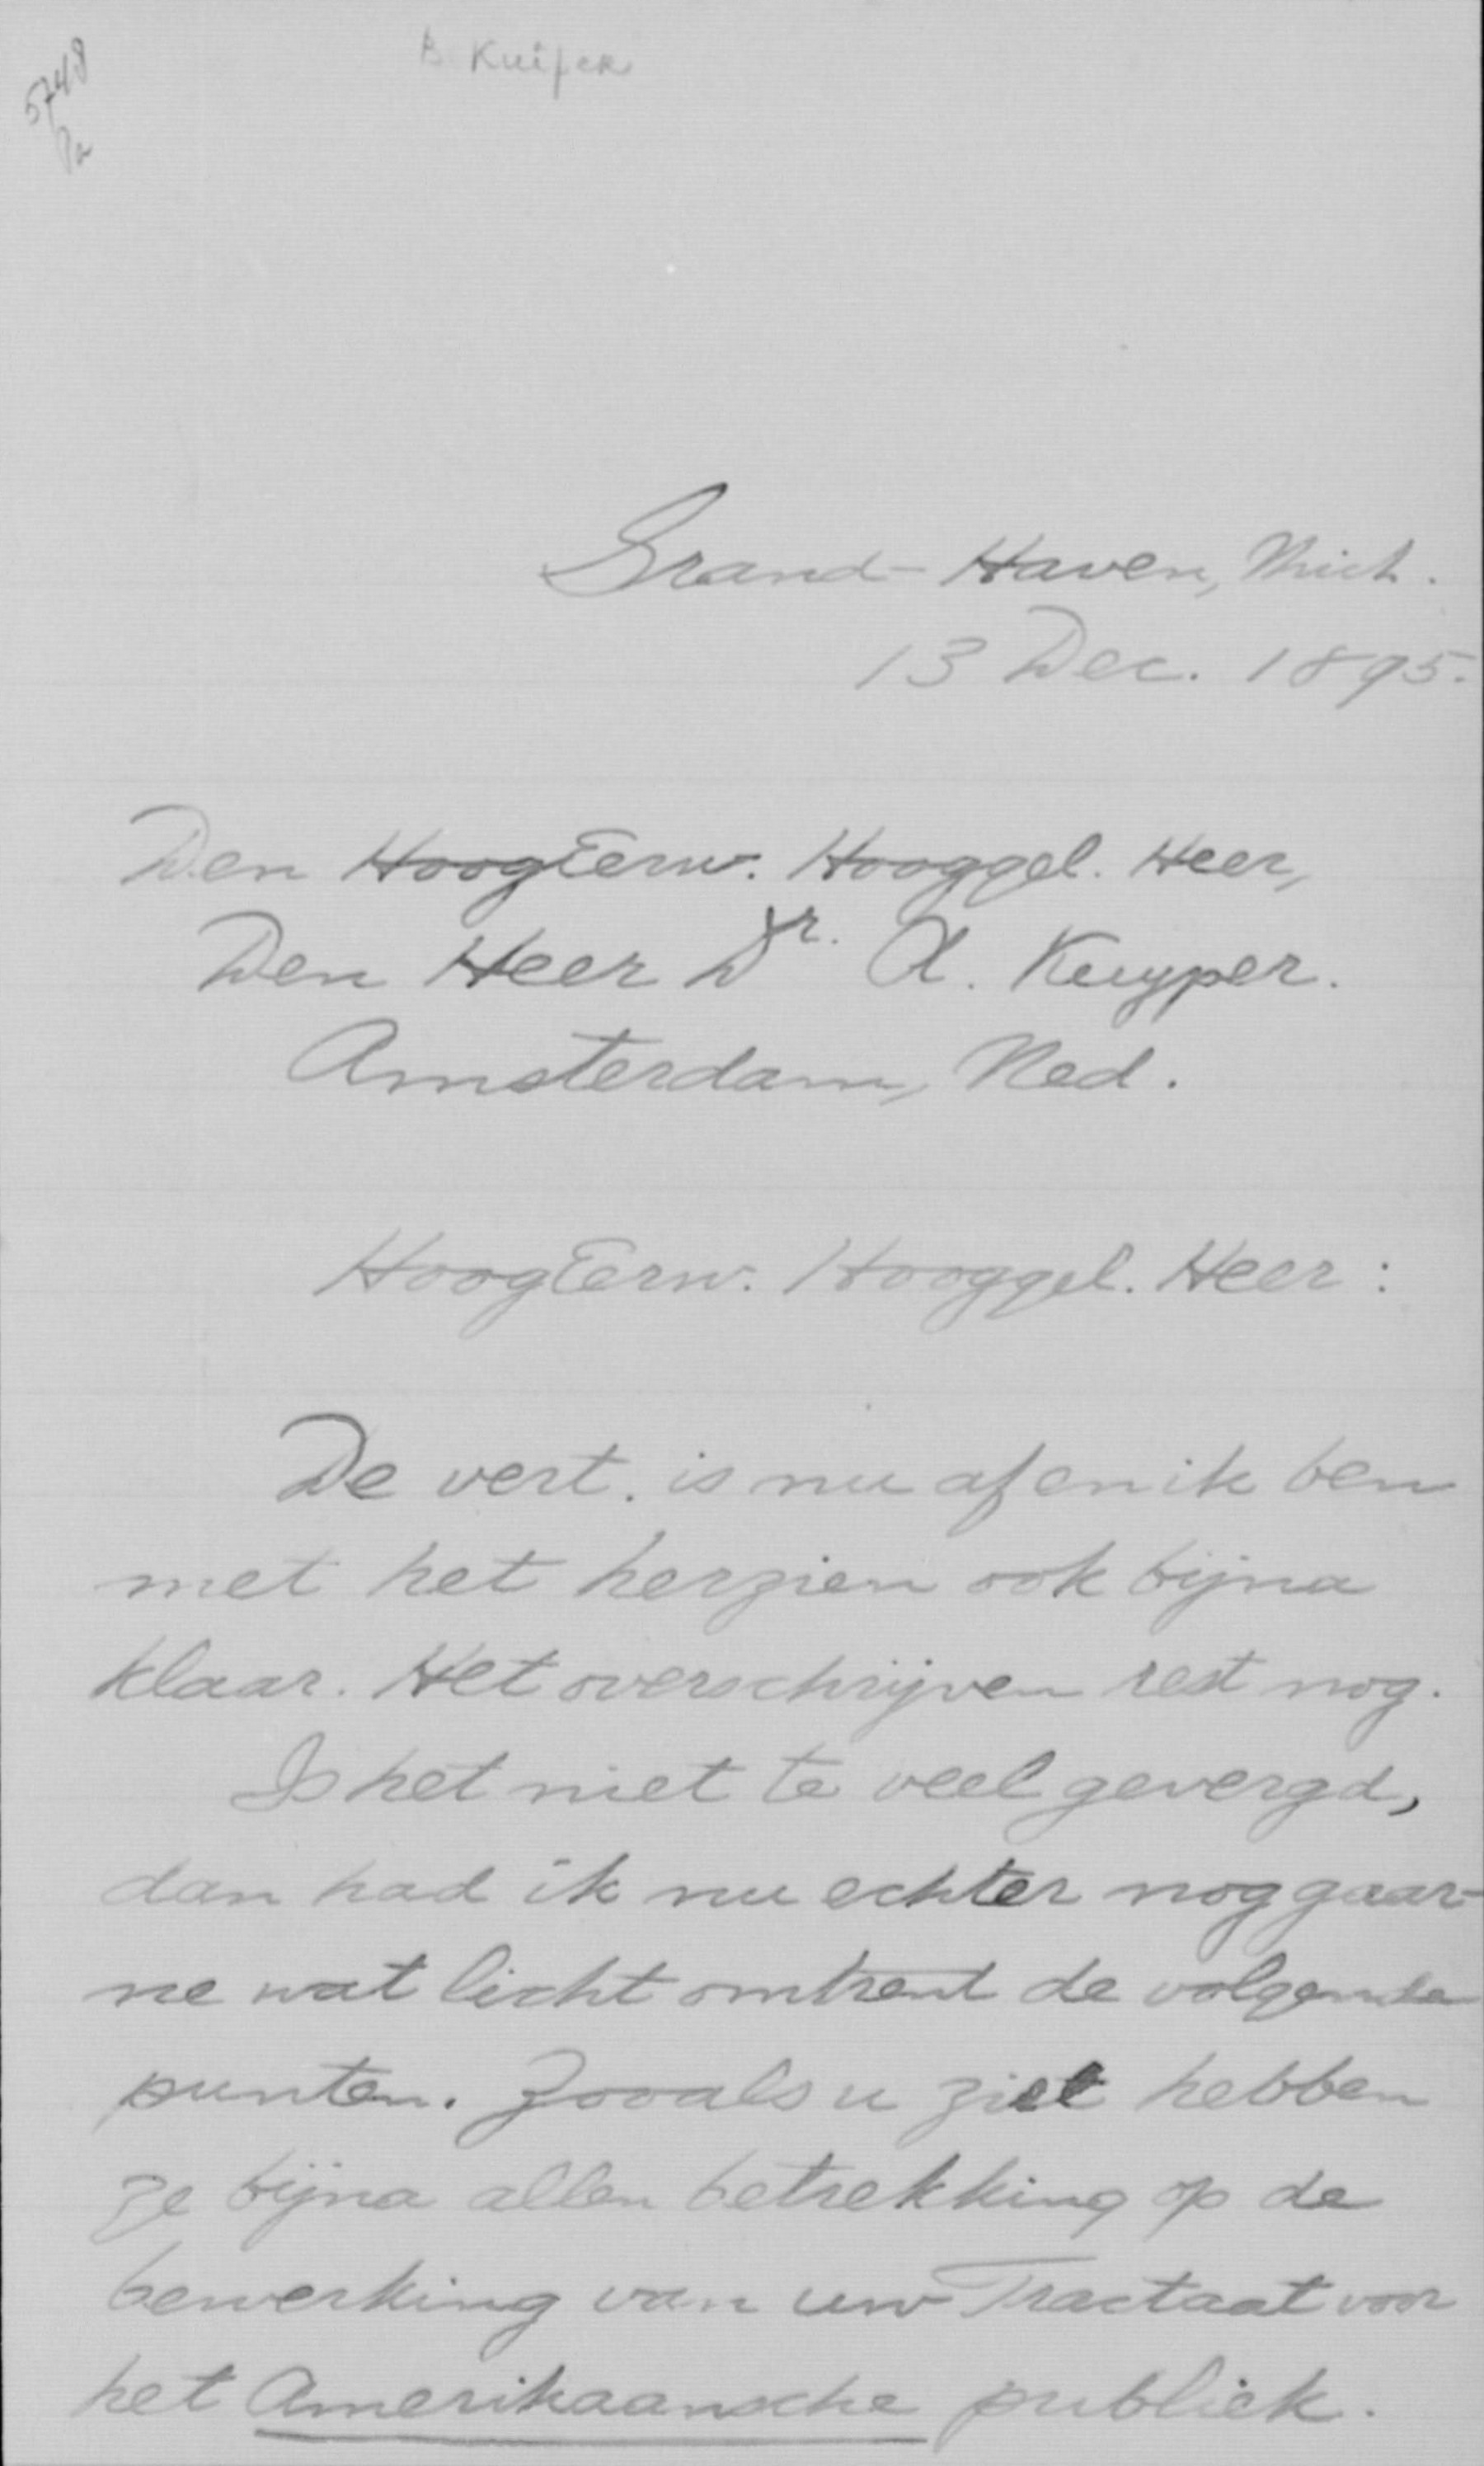 5748
B Kuiper
Grand-Haven, Mich.
13 Dec. 1895.
Den HoogEerw. Hooggel. Heer,
Den Heer Dr. A. Kuyper.
Amsterdam, Ned.
HoogEerw. Hooggel. Heer:
De vert. is nu af en ik ben
met het herzien ook bijna
klaar. Het overschrijven rest nog.
Is het niet te veel gevergd,
dan had ik nu echter nog gaar-
ne wat licht omtrent de volgende
punten. Zooals u ziet hebben
ze bijna allen betrekking op de
bewerking van uw Tractaat voor
het Amerikaansche publiek.